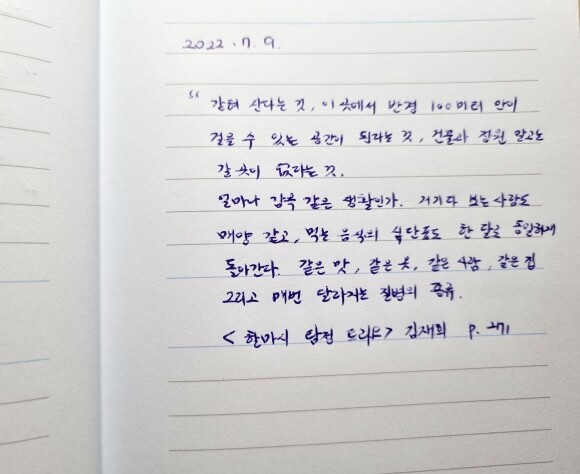 2022.7.9.
“ 갇혀 산다는 것, 이 곳에서 반경 100미터 안이
걸을 수 있는 공간이 된다는 것, 건물과 정원 말고는
갈 곳이 없다는 것.
얼마나 감옥 같은 생활인가. 거기다 보는 사람도
매양 같고, 먹는 음식의 식단표도 한 달로 동일하게
돌아간다. 같은 맛, 같은 옷, 같은 사람, 같은 집
그리고 매번 달라지는 질병의 종류.
< 할마시 탐정 트리오> 김재희 p. 271